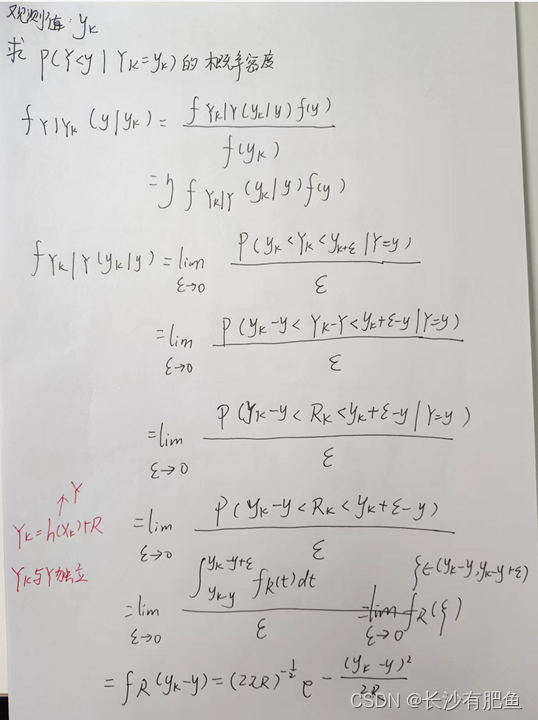 观测值: yk
求 P(Y<y | Yk=yk) 的概率密度
fY|Yk (y|yk) = fYk|Y(yk|y) f(y) / f(yk)
= η fYk|Y (yk|y) f(y)
fYk|Y(yk|y) = lim ε→0 P(yk<Yk<yk+ε | Y=y) / ε
= lim ε→0 P(yk-y<Yk-Y<yk+ε-y | Y=y) / ε
= lim ε→0 P(yk-y<Rk<yk+ε-y | Y=y) / ε
↑Y
Yk=h(Xk)+R
Yk与Y独立
= lim ε→0 P(yk-y<Rk<yk+ε-y) / ε
= lim ε→0 ∫yk-y^yk-y+ε fR(t)dt / ε = lim ε→0 fR(ξ) ξ∈(yk-y, yk-y+ε)
= fR(yk-y) = (2πR)^-1/2 e - (yk-y)² / 2R
CSDN @长沙有肥鱼